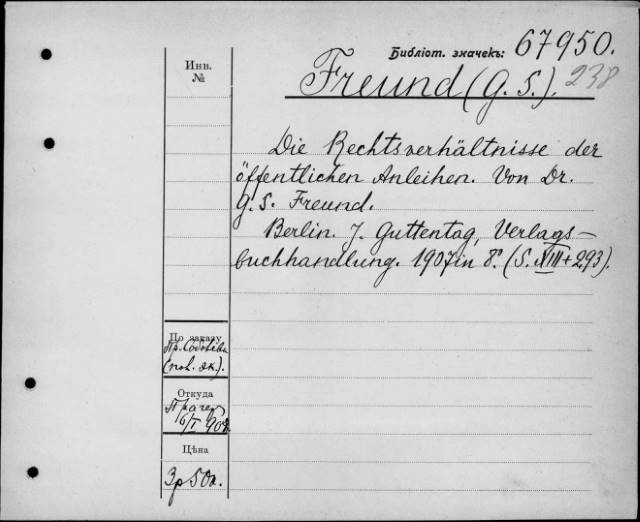 Библіот. значекъ: 67950.
238
Инв.
№
Freund (G. S.).
Die Rechtsverhältnisse der
öffentlichen Anleihen. Von Dr.
G. S. Freund.
Berlin. J. Guttentag, Verlags-
buchhandlung. 1907 in 8°. (S. XIII+293).
По заказу
Пр.
Откуда
6/I 908.
Цѣна
3р 50к.